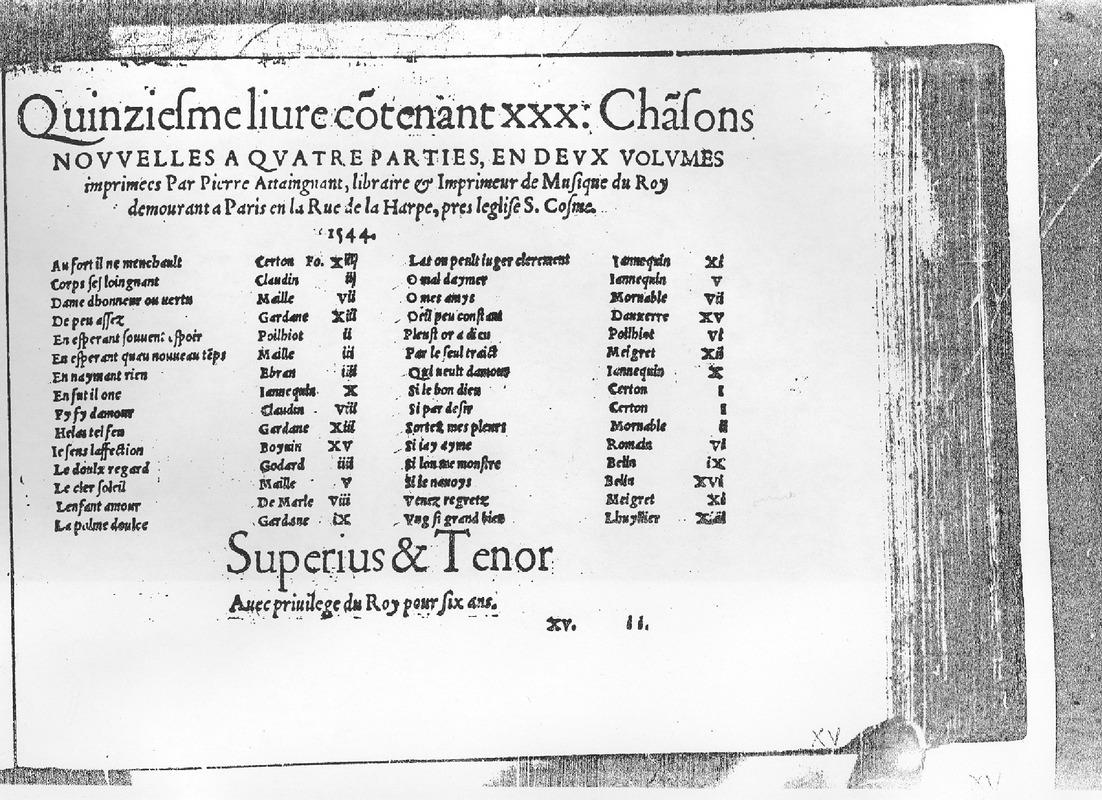 Quinziesme liure cõtenant xxx: Chãsons
NOVVELLES A QVATRE PARTIES, EN DEVX VOLVMES
imprimees Par Pierre Attaingnant, libraire & Imprimeur de Musique du Roy
demourant a Paris en la Rue de la Harpe, pres leglise S. Cosme.
1544.
Au fort il ne menchault Certon Fo. xiiij
Corps sesloingnant Claudin iij
Dame dhonneur ou vertu Maille vii
De peu assez Gardane Xiii
En esperant souvent espoir Poilhiot ii
En esperant quau nouueau tẽps Maille iii
En naymant rien Ebran iiii
En fut il onc Iannequin X
Fy fy damour Claudin viii
Helas tel feu Gardane Xiii
Ie sens laffection Boyuin XV
Le doulx regard Godard iiii
Le cler soleil Maille v
Lenfant amour De Marle viii
La palme doulce Gardane iX
Lat on peult iuger clerement Iannequin Xi
O mal daymer Iannequin v
O mes amys Mornable vii
Oeil peu constant Dauxerre XV
Pleust or a dieu Poilhiot vi
Par le seul traict Meigret Xii
Qui veult damour Iannequin X
Si le bon dieu Certon I
Si par desir Certon I
Sortez mes pleurs Mornable ii
Si iay ayme Romain vi
Si lon me monstre Belin iX
Si ie nauoys Belin XVi
Venez regretz Meigret Xi
Vng si grand bien Lhuyllier
Superius & Tenor
Auec priuilege du Roy pour six ans.
xv. ii.
XV
XV